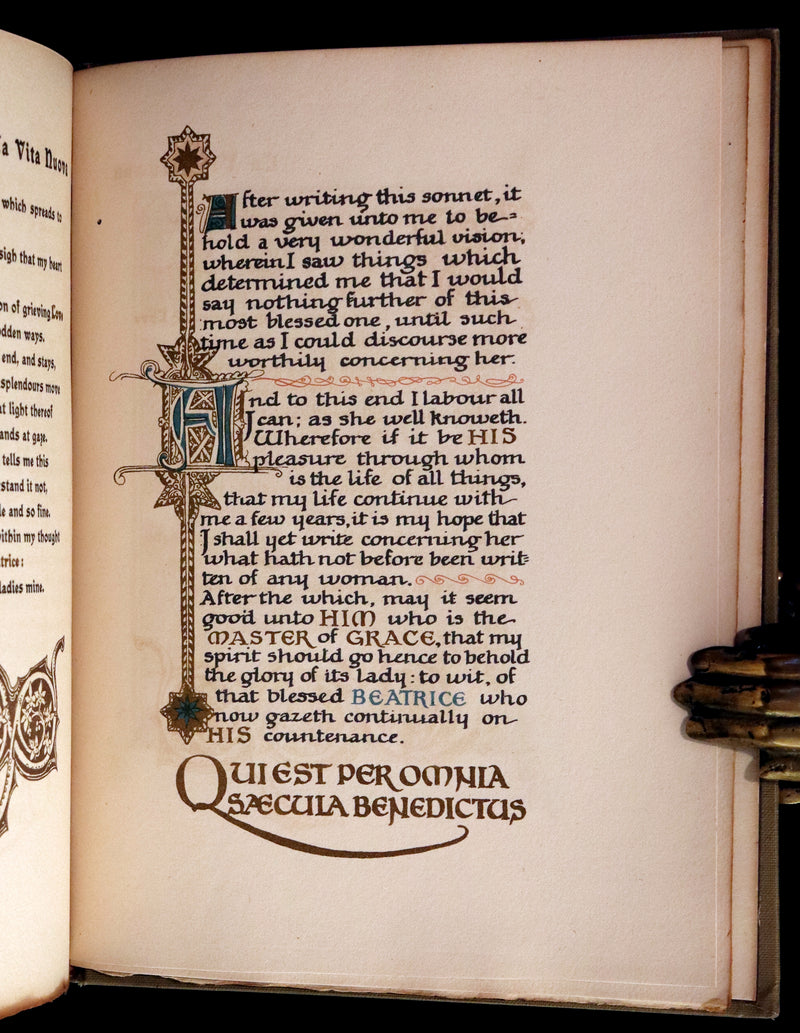 a Vita Nuova
which spreads to
sigh that my heart
on of grieving Love
dden ways,
end, and stays,
splendours more
at light thereof
ands at gaze.
tells me this
stand it not,
le and so fine.
within my thought
trice:
ladies mine.
After writing this sonnet, it
was given unto me to be-
hold a very wonderful vision;
wherein I saw things which
determined me that I would
say nothing further of this
most blessed one, until such
time as I could discourse more
worthily concerning her.
And to this end I labour all
I can; as she well knoweth.
Wherefore if it be HIS
pleasure through whom
is the life of all things,
that my life continue with
me a few years, it is my hope that
I shall yet write concerning her
what hath not before been writ=
ten of any woman.
After the which, may it seem
good unto HIM who is the
MASTER of GRACE, that my
spirit should go hence to behold
the glory of its lady: to wit, of
that blessed BEATRICE who
now gazeth continually on
HIS countenance.
QUI EST PER OMNIA
SÆCULA BENEDICTUS